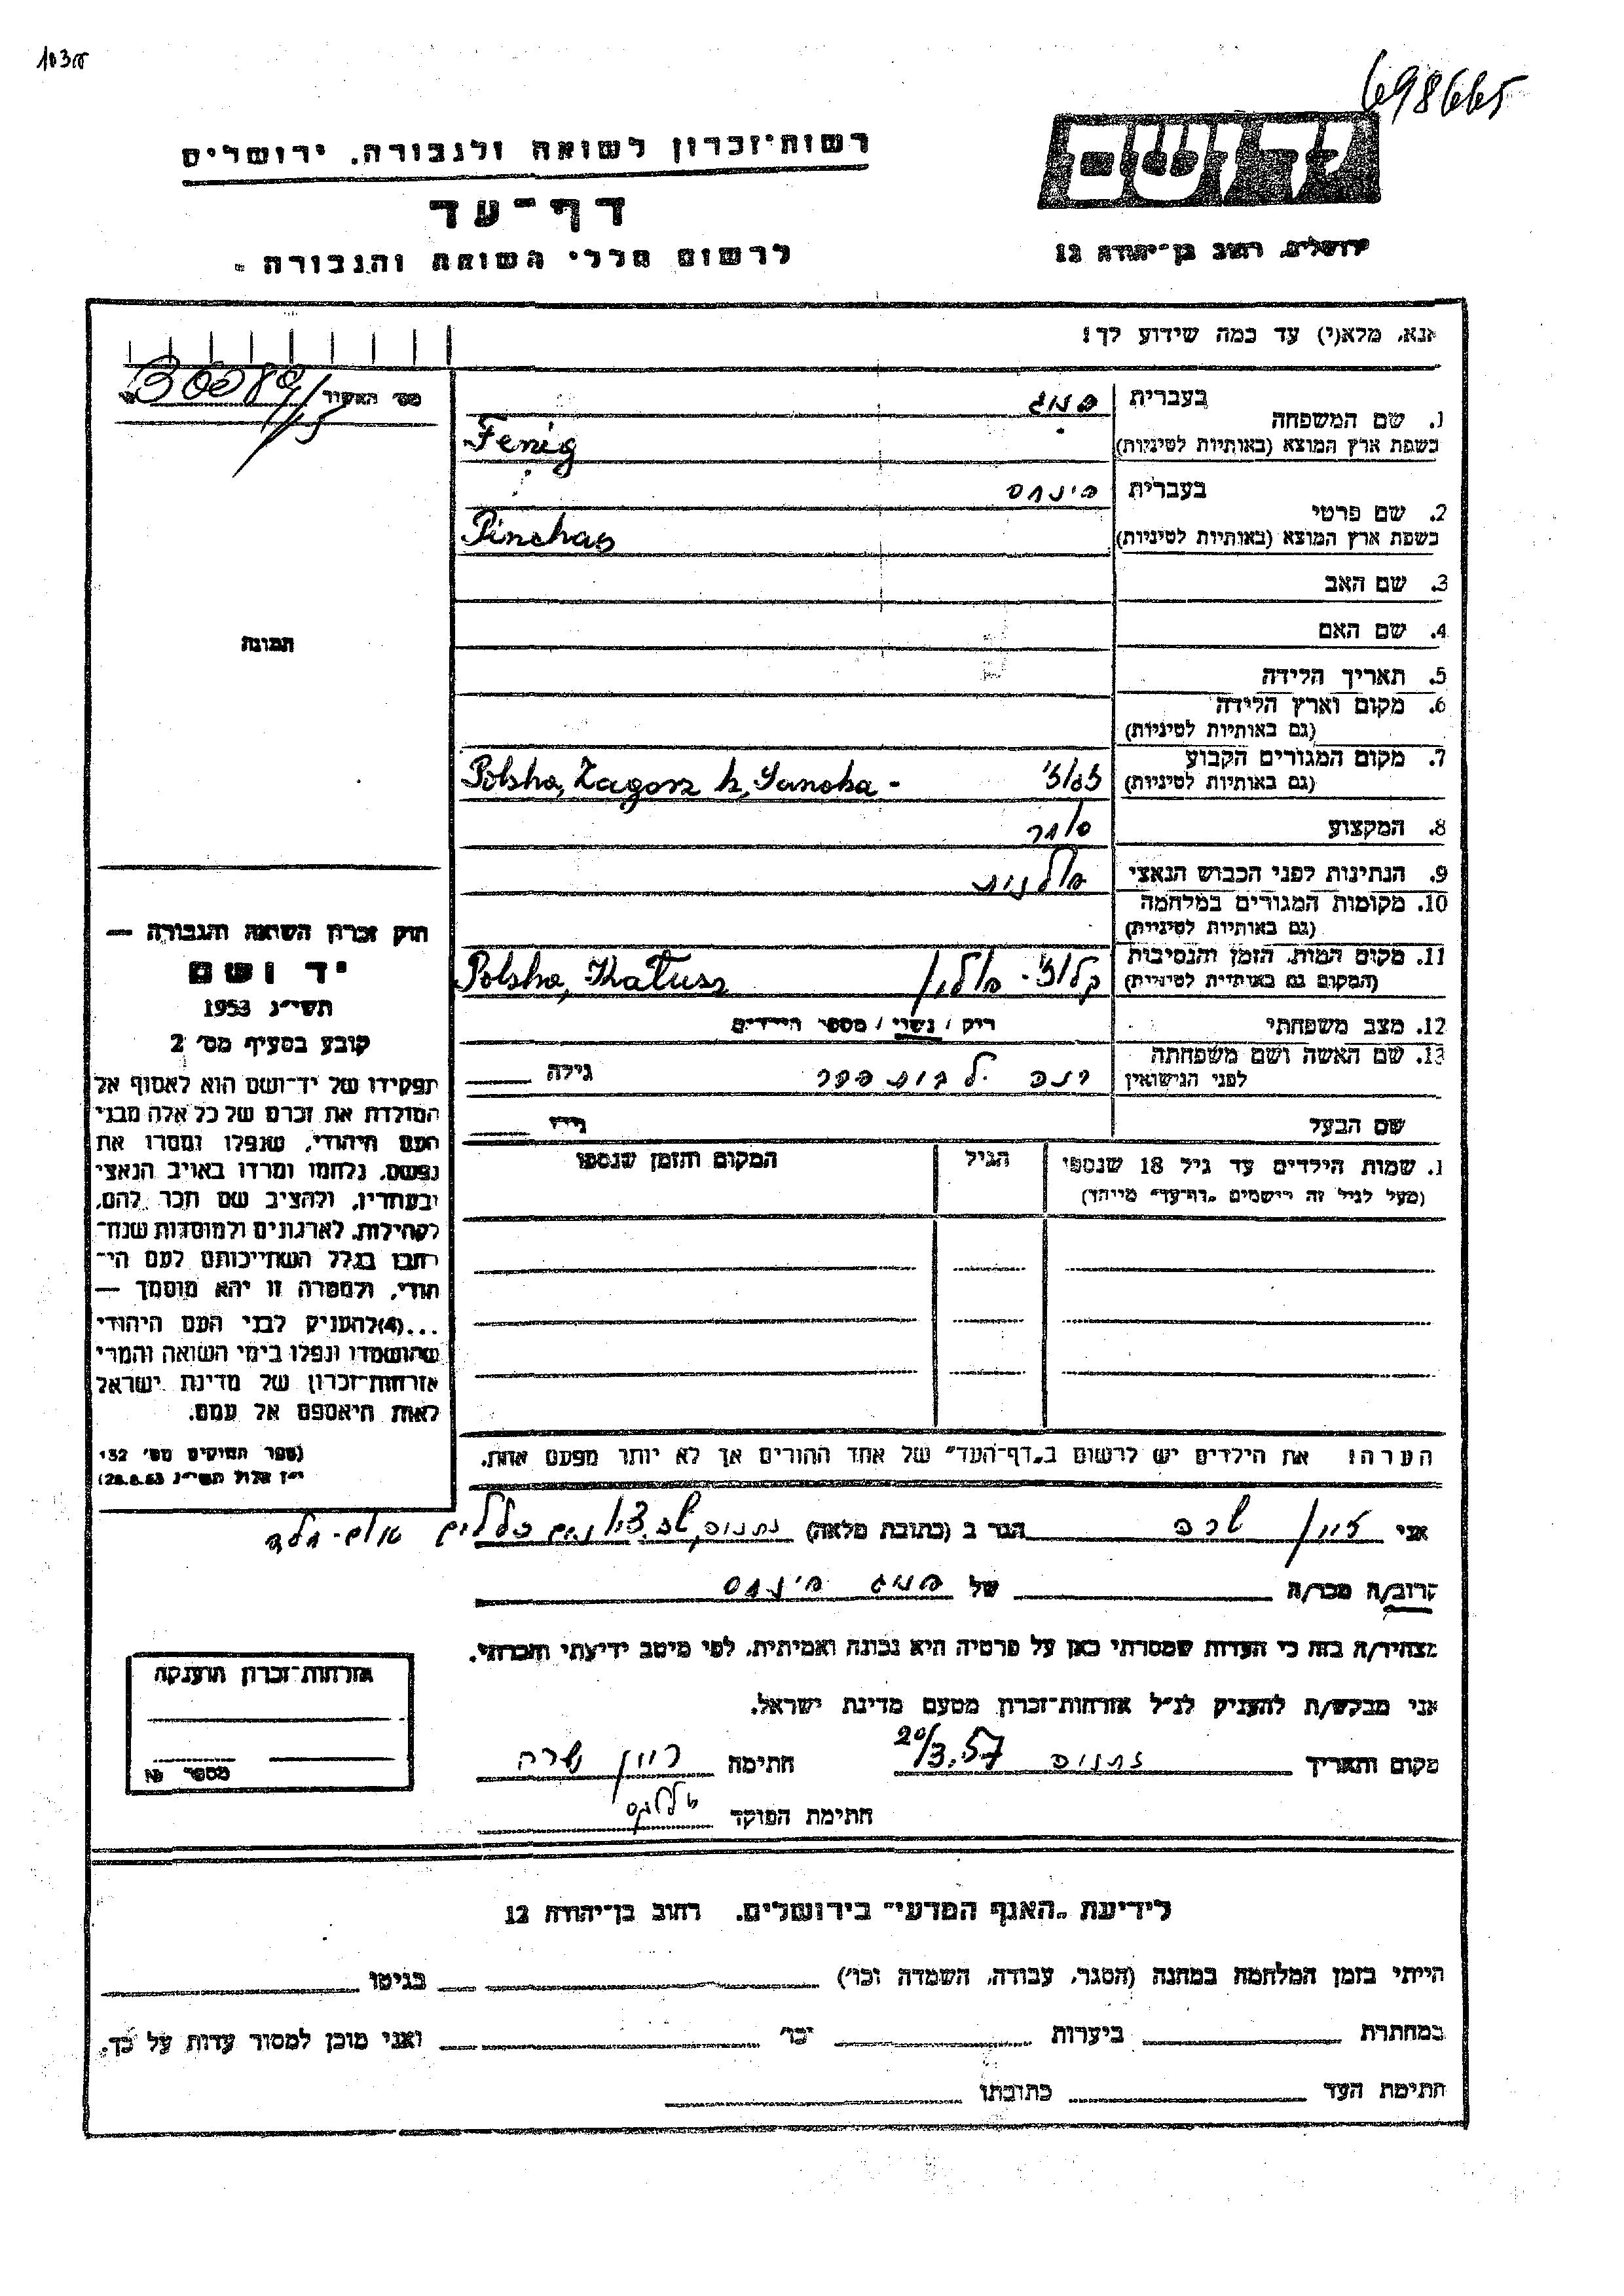 698665
רשות־זכרון לשואה ולגבורה. ירושלים
יד ושם
דף־עד
ירושלים, רחוב בן־יהודה 12
לרשום חללי השואה והגבורה
אנא, מלא(י) עד כמה שידוע לך!
מס' האשיר
1. שם המשפחה בעברית פניג
בשפת ארץ המוצא (באותיות לטיניות) Fenig
2. שם פרטי בעברית פינחס
בשפת ארץ המוצא (באותיות לטיניות) Pinchas
3. שם האב
4. שם האם
תמונה
5. תאריך הלידה
6. מקום וארץ הלידה
(גם באותיות לטיניות)
7. מקום המגורים הקבוע
(גם באותיות לטיניות) Polsha, Zagorz k, Sanoka -
8. המקצוע סוחר
9. הנתינות לפני הכבוש הנאצי פולנית
10. מקומות המגורים במלחמה
(גם באותיות לטיניות)
11. מקום המות, הזמן והנסיבות
(המקום גם באותיות לטיניות) פולין Polsha, Katusz
12. מצב משפחתי רוק / נשוי / מספר הילדים
13. שם האשה ושם משפחתה
לפני הנישואין גילה
שם הבעל גילו
1. שמות הילדים עד גיל 18 שנספו הגיל המקום והזמן שנספו
(מעל לגיל זה רושמים "דף־עד" מיוחד)
חוק זכרון השואה והגבורה —
יד ושם
תשי״ג 1953
קובע בסעיף מס' 2
תפקידו של יד־ושם הוא לאסוף אל
המולדת את זכרם של כל אלה מבני
העם היהודי, שנפלו ומסרו את
נפשם, נלחמו ומרדו באויב הנאצי
ובעוזריו, ולהציב שם וזכר להם,
לקהילות, לארגונים ולמוסדות שנח־
רבו בגלל השתייכותם לעם הי־
הודי, ולמטרה זו יהא מוסמך —
...(4) להעניק לבני העם היהודי
שהושמדו ונפלו בימי השואה והמרי
אזרחות־זכרון של מדינת ישראל
לאות היאספם אל עמם.
(ספר החוקים מס' 132
י״ז אלול תשי״ג 28.8.53)
הערה! את הילדים יש לרשום ב"דף־העד" של אחד ההורים אך לא יותר מפעם אחת.
אני שרה הגר ב (כתובת מלאה)
קרוב/ה מכר/ה של פניג פינחס
מצהיר/ה בזה כי העדות שמסרתי כאן על פרטיה היא נכונה ואמיתית, לפי מיטב ידיעתי והכרתי.
אני מבקש/ת להעניק לנ״ל אזרחות־זכרון מטעם מדינת ישראל.
מקום ותאריך 20/3.57 חתימה שרה
חתימת הפוקד
אזרחות־זכרון הוענקה
מספר №
לידיעת "האגף המדעי" בירושלים. רחוב בן־יהודה 12
הייתי בזמן המלחמה במחנה (הסגר, עבודה, השמדה וכו') בגיטו
במחתרת ביערות וכו' ואני מוכן למסור עדות על כך.
חתימת העד כתובתו